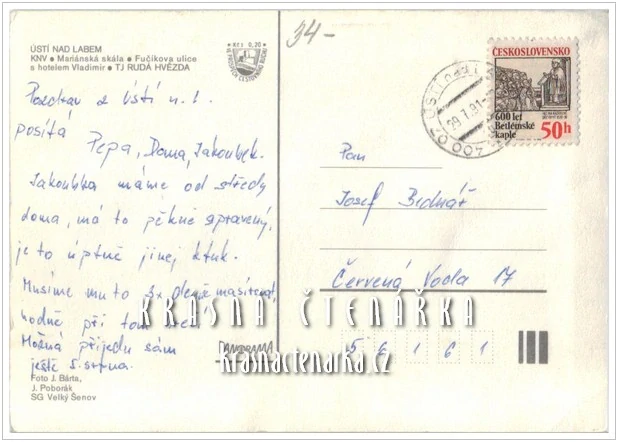 ÚSTÍ NAD LABEM
KNV • Mariánská skála • Fučíkova ulice
s hotelem Vladimir • TJ RUDÁ HVĚZDA
Kčs 0,20
34-
Pozdrav z Ústí n. L.
posílá Pepa, Dana, Jakoubek.
Jakoubka máme od středy
doma, má to pěkně spravený,
je to úplně jinej kluk.
Musíme mu to 3x denně masírovat,
hodně při tom
Možná přijedu sám
ještě 5. srpna.
Foto J. Bárta,
J. Poborák
SG Velký Šenov
PANORAMA
ČESKOSLOVENSKO
600 let
Betlémské
kaple
50h
ÚSTÍ nad L
29.7.91
400 02
Pan
Josef Bednář
Červená Voda 17
56161
KRÁSNÁ ČTENÁŘKA
krasnactenarka.cz